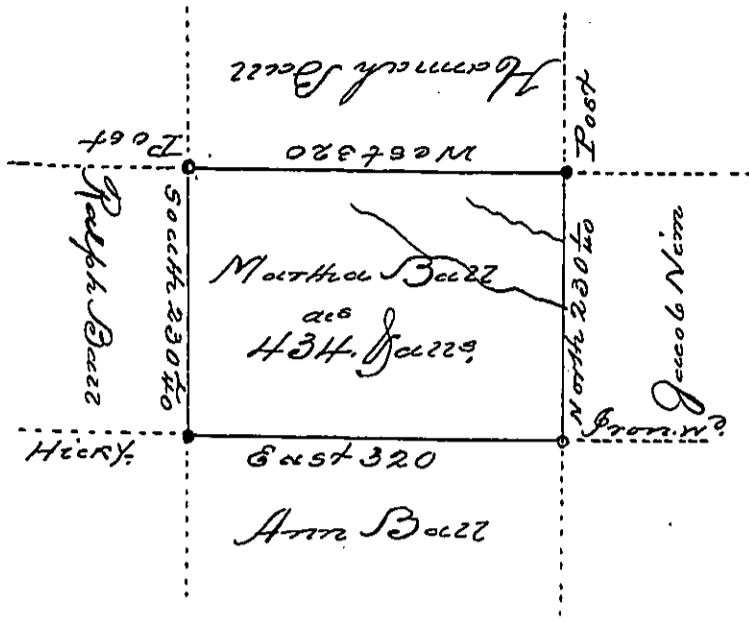 Hannah Barr
Post
West 320
Post
Ralph Barr
South 230 1/40
Martha Barr
acs
434. ꝑ allˢ.
North 230 1/40
Jacob Nim
Hicky.
East 320
Ironw.ᵈ
Ann Barr